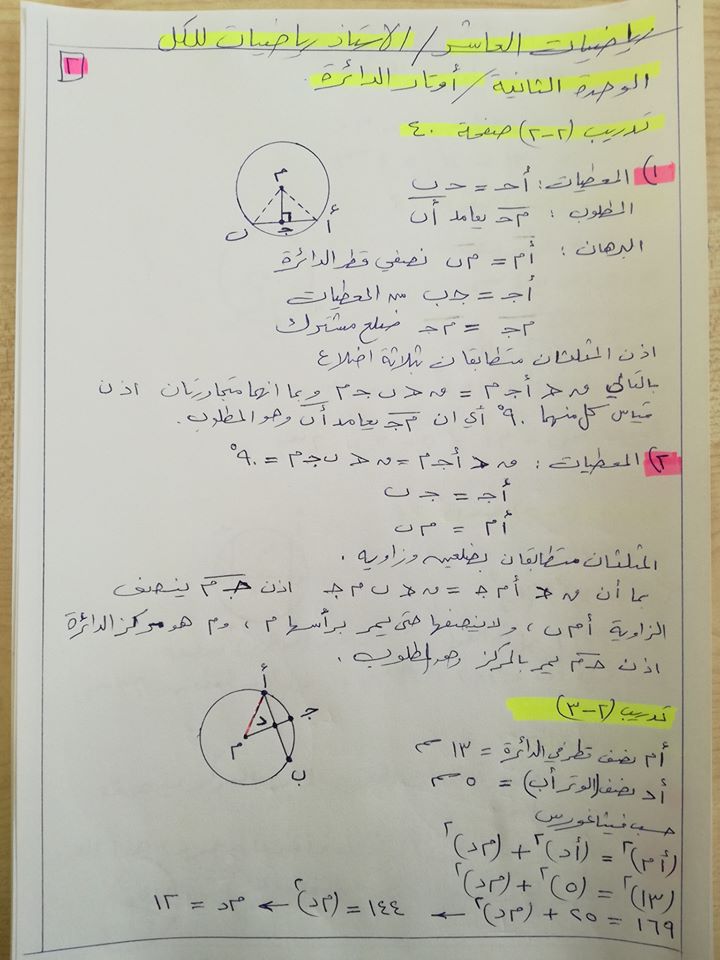 رياضيات العاشر / الاستاذ رياضيات للكل
٢
الوحدة الثانية / أوتار الدائرة.
تدريب (٢-٢) صفحة ٤٠
م
أ
جـ
ب
١) المعطيات: أجـ = جـ ب
المطلوب: م جـ يعامد أب
البرهان:
أم = م ب نصفي قطر الدائرة
أجـ = جـ ب من المعطيات
م جـ = م جـ ضلع مشترك
اذن المثلثان متطابقان بثلاثة اضلاع
بالتالي ق > أجـ م = ق > ب جـ م وبما انهما متجاورتان اذن
قياس كل منهما ٩٠° أي ان م جـ يعامد أب وهو المطلوب.
٢) المعطيات: ق > أجـ م = ق > ب جـ م = ٩٠°
أجـ = جـ ب
أم = م ب
المثلثان متطابقان بضلعين وزاوية.
بما أن ق > أم جـ = ق > ب م جـ اذن جـ م ينصف
الزاوية أم ب، ولا ينصفها حتى يمر برأسها م، وم هو مركز الدائرة
اذن جـ م يمر بالمركز وهو المطلوب.
تدريب (٢-٣)
أ
جـ
د
م
ب
أم نصف قطر في الدائرة = ١٣ سم
أد نصف (الوتر أب) = ٥ سم
حسب فيثاغورس
(أم)٢ = (أد)٢ + (م د)٢
(١٣)٢ = (٥)٢ + (م د)٢
١٦٩ = ٢٥ + (م د)٢ ← ١٤٤ = (م د)٢ ← م د = ١٢